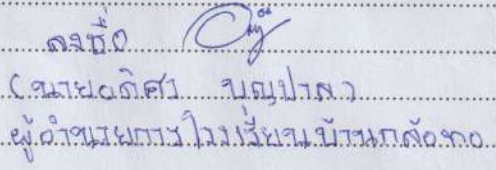 ลงชื่อ
(นายอดิศา บุญปาล)
ผู้อำนวยการโรงเรียนบ้านกล้อทอ